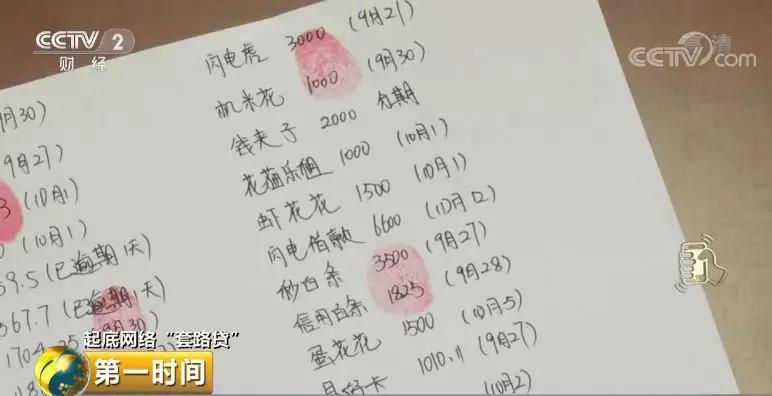 CCTV 2
财经
高清
CCTV.com
闪电虎 3000 (9月27)
机米花 1000 (9月30)
钱夹子 2000 分期
花猫乐租 1000 (10月1)
虾花花 1500 (10月1)
闪电借款 6600 (10月12)
秒白条 3500 (9月27)
信用白条 1825 (9月28)
蛋花花 1500 (10月5)
卡 1010.11 (9月27)
(10月2)
月30)
9月27)
3 (10月1
(10月1)
59.5 (已逾期1天)
567.7 (已逾期1天)
1704.35 9月30)
起底网络“套路贷”
第一时间